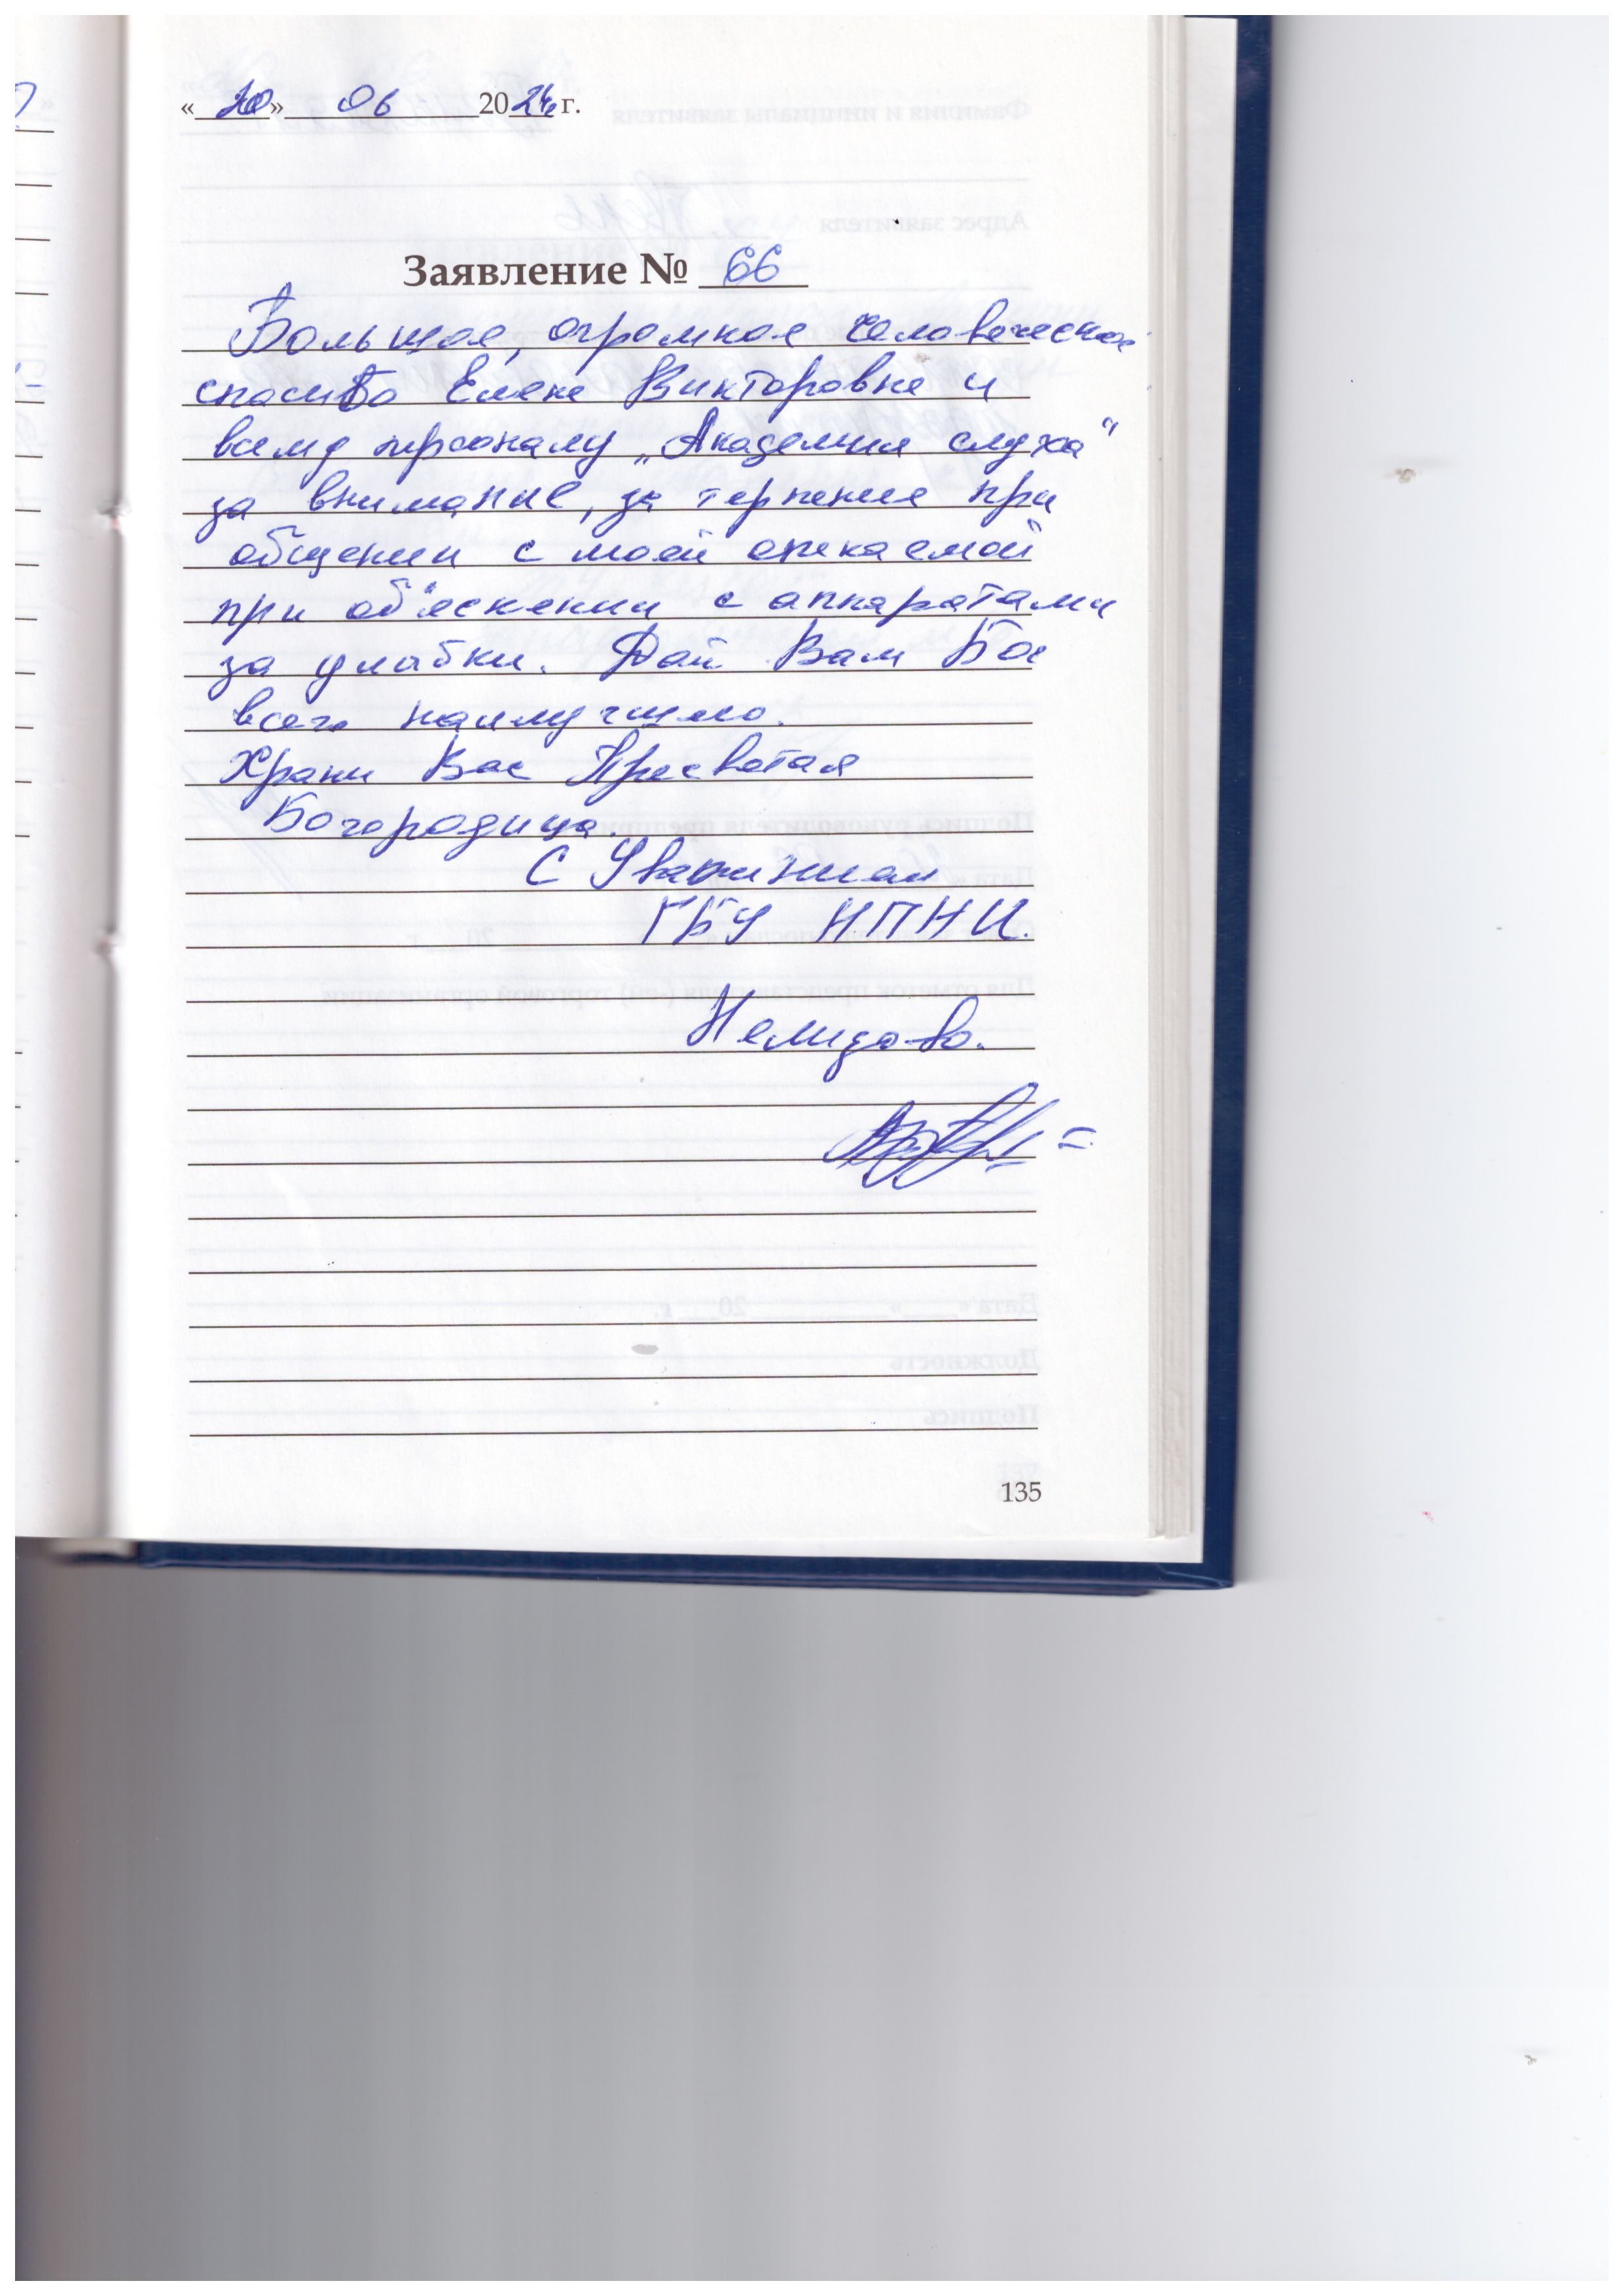 «20» 06 2024 г.
Заявление № 66
Большое, огромное человеческое
спасибо Елене Викторовне и
всему персоналу „Академия слуха“
за внимание, за терпение при
общении с моей опекаемой
при объяснении с аппаратами
за улыбки. Дай Вам Бог
всего наилучшего.
Храни Вас Пресвятая
Богородица.
С Уважением
ГБУ НПНИ.
Нелидово.
135